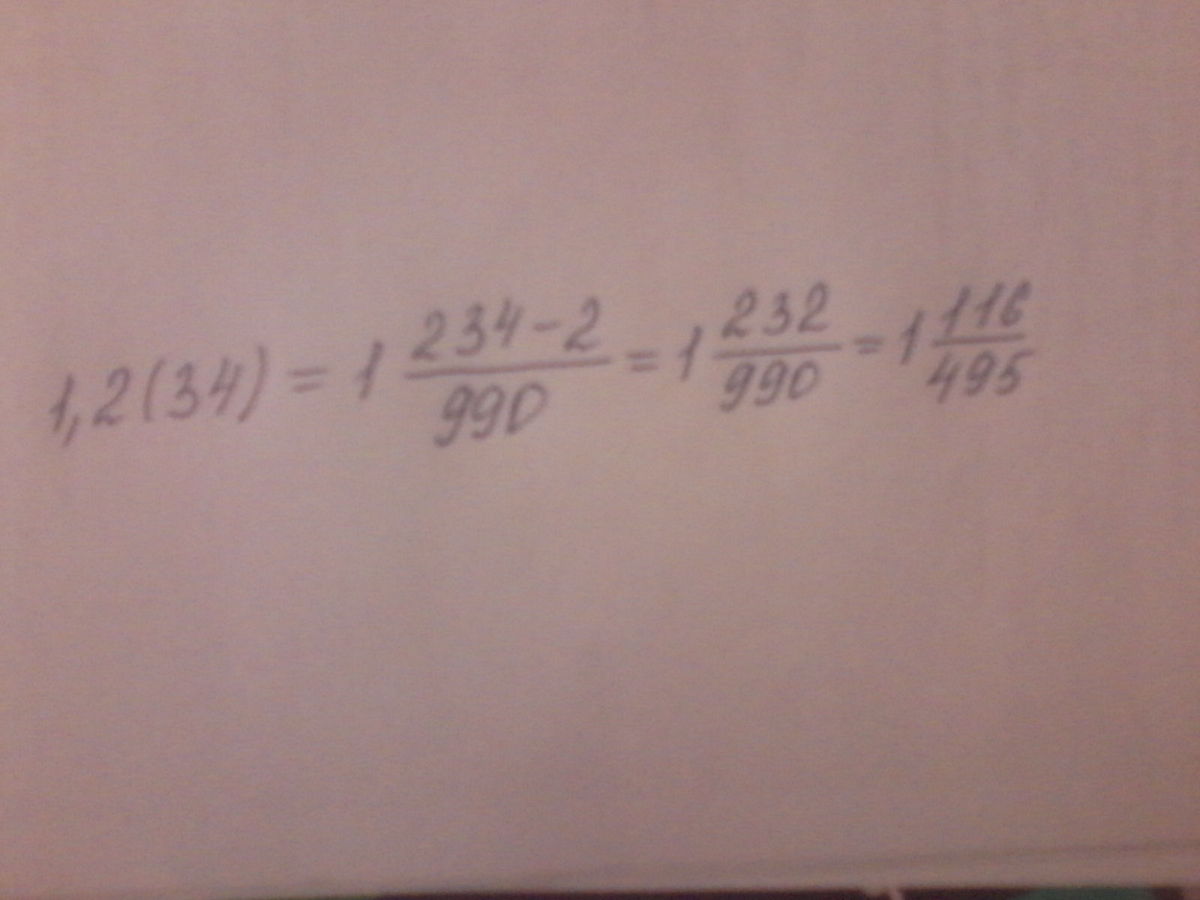 1,2(34) = 1 234-2/990 = 1 232/990 = 1 116/495